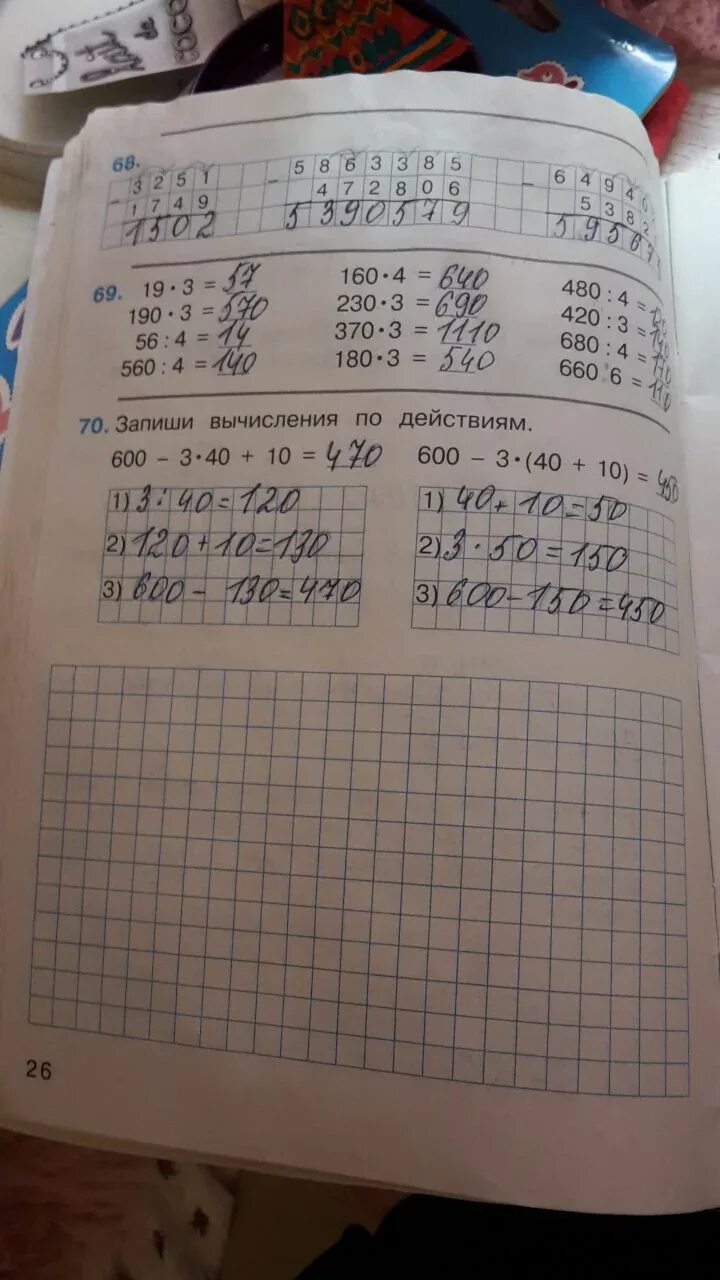 68.
3 2 5 1
- 1 7 4 9
1502
- 5 8 6 3 3 8 5
4 7 2 8 0 6
5390579
- 6 4 9 4
5 3 8 2
5956
69. 19 · 3 = 57
190 · 3 = 570
56 : 4 = 14
560 : 4 = 140
160 · 4 = 640
230 · 3 = 690
370 · 3 = 1110
180 · 3 = 540
480 : 4 =
420 : 3 = 140
680 : 4 = 170
660 : 6 = 110
70. Запиши вычисления по действиям.
600 – 3 · 40 + 10 = 470
1) 3 · 40 = 120
2) 120 + 10 = 130
3) 600 - 130 = 470
600 – 3 · (40 + 10) = 450
1) 40 + 10 = 50
2) 3 · 50 = 150
3) 600 - 150 = 450
26